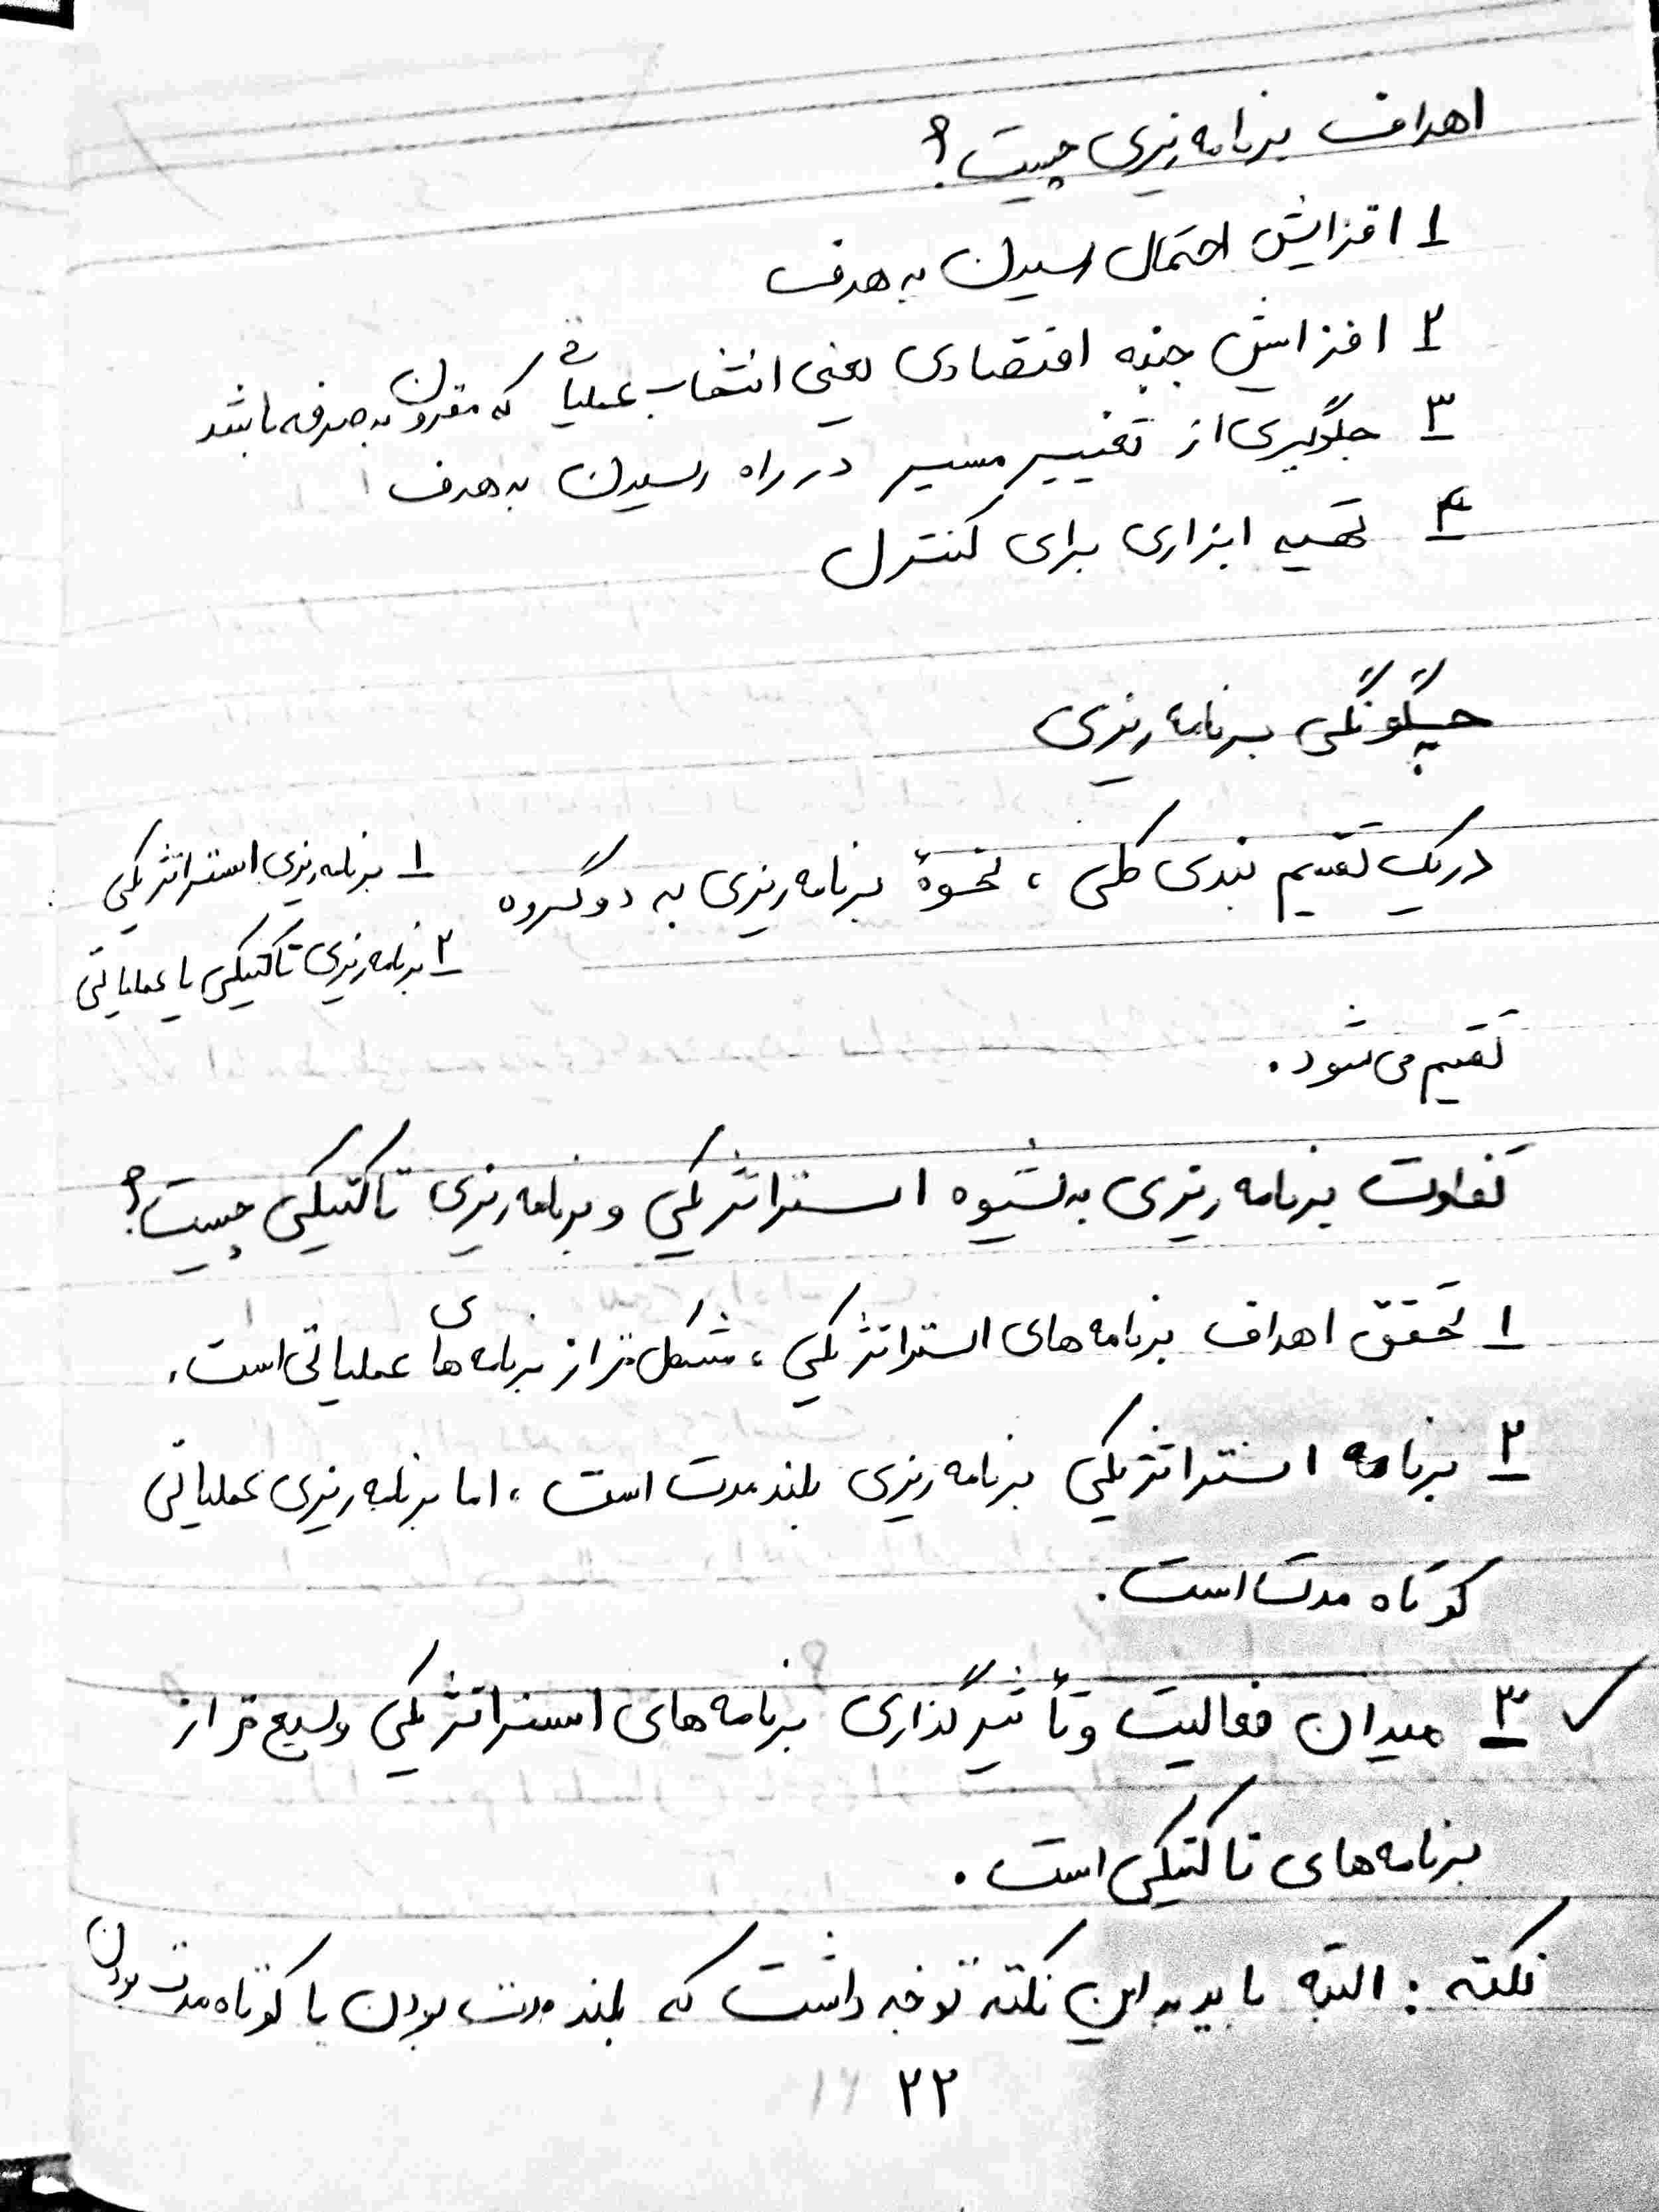 اهداف برنامه ریزی چیست؟
۱ افزایش احتمال رسیدن به هدف
۲ افزایش جنبه اقتصادی یعنی انتخاب عملیاتی که مقرون به صرفه باشد
۳ جلوگیری از تغییر مسیر در راه رسیدن به هدف
۴ تهیه ابزاری برای کنترل
چگونگی برنامه ریزی
در یک تقسیم بندی کلی، نحوهٔ برنامه ریزی به دو گروه
۱ برنامه ریزی استراتژیکی
۲ برنامه ریزی تاکتیکی یا عملیاتی
تقسیم می شود.
تفاوت برنامه ریزی به شیوه استراتژیکی و برنامه ریزی تاکتیکی چیست؟
۱ تحقق اهداف برنامه های استراتژیکی، مشکل تر از برنامه های عملیاتی است.
۲ برنامه استراتژیکی برنامه ریزی بلند مدت است، اما برنامه ریزی عملیاتی
کوتاه مدت است.
✓ ۳ میدان فعالیت و تأثیرگذاری برنامه های استراتژیکی وسیع تر از
برنامه های تاکتیکی است.
نکته: البته باید به این نکته توجه داشت که بلند مدت بودن یا کوتاه مدت بودن
۲۲